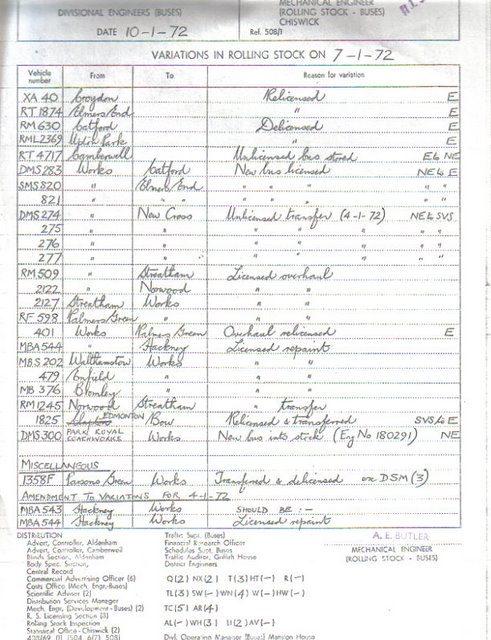 DIVISIONAL ENGINEERS (BUSES)
MECHANICAL ENGINEER
(ROLLING STOCK - BUSES)
CHISWICK
DATE 10-1-72
Ref. 508/1
VARIATIONS IN ROLLING STOCK ON 7-1-72
Vehicle number From To Reason for variation
XA 40 Croydon Relicensed E
RT 1874 Elmers End " E
RM 630 Catford Delicensed E
RML 2369 Upton Park " E
RT 4717 Camberwell Unlicensed bus stored E to NE
DMS 283 Works Catford New bus licensed NE to E
SMS 820 " Elmers End " " " " "
821 " " " " " " "
DMS 274 " New Cross Unlicensed transfer (4-1-72) NE to SVS
275 " " " " " " "
276 " " " " " " "
277 " " " " " " "
RM 509 " Streatham Licensed overhaul
2122 " Norwood " "
2127 Streatham Works " "
RF 598 Palmers Green " " "
401 Works Palmers Green Overhaul relicensed E
MBA 544 " Hackney Licensed repaint
MBS 202 Walthamstow Works " "
479 Enfield " " "
MB 376 Bromley " " "
RM 1245 Norwood Streatham " transfer
1825 EDMONTON Bow Relicensed & transferred SVS to E
DMS 300 PARK ROYAL COACHWORKS Works New bus into stock (Eng No 180291) NE
MISCELLANEOUS
1358F Parsons Green Works Transferred & delicensed ex DSM (3)
AMENDMENT TO VARIATIONS FOR 4-1-72
MBA 543 Hackney Works SHOULD BE :-
MBA 544 Hackney Works Licensed repaint
DISTRIBUTION
Advert. Controller, Aldenham
Advert. Controller, Camberwell
Blinds Section, Aldenham
Body Spec. Section,
Central Record
Commercial Advertising Officer (6)
Costs Office (Mech. Engr.-Buses)
Scientific Adviser (2)
Distribution Services Manager
Mech. Engr. (Development - Buses) (2)
R. S. Licensing Section (3)
Rolling Stock Inspection
Statistical Office - Chiswick (2)
Traffic Supt. (Buses)
Financial Research Officer
Schedules Supt. Buses
Traffic Auditor, Griffith House
District Engineers
Q(2) NX(2) T(3) HT(-) R(-)
TL(3) SW(-) WN(4) W(-) HW(-)
TC(5) AR(4)
AL(-) WH(3) U(2) AV(-)
Divl. Operating Manager (Buses) Mansion House
A. E. BUTLER
MECHANICAL ENGINEER
(ROLLING STOCK - BUSES)